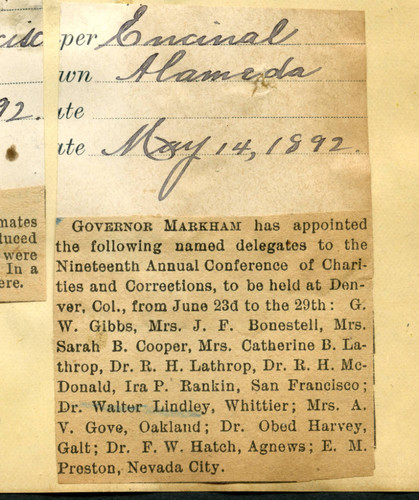 cisc
per Encinal
wn Alameda
92.
ate
ate May 14, 1892.
mates
duced
were
In a
ere.
GOVERNOR MARKHAM has appointed
the following named delegates to the
Nineteenth Annual Conference of Chari-
ties and Corrections, to be held at Den-
ver, Col., from June 23d to the 29th: G.
W. Gibbs, Mrs. J. F. Bonestell, Mrs.
Sarah B. Cooper, Mrs. Catherine B. La-
throp, Dr. R. H. Lathrop, Dr. R. H. Mc-
Donald, Ira P. Rankin, San Francisco;
Dr. Walter Lindley, Whittier; Mrs. A.
V. Gove, Oakland; Dr. Obed Harvey,
Galt; Dr. F. W. Hatch, Agnews; E. M.
Preston, Nevada City.